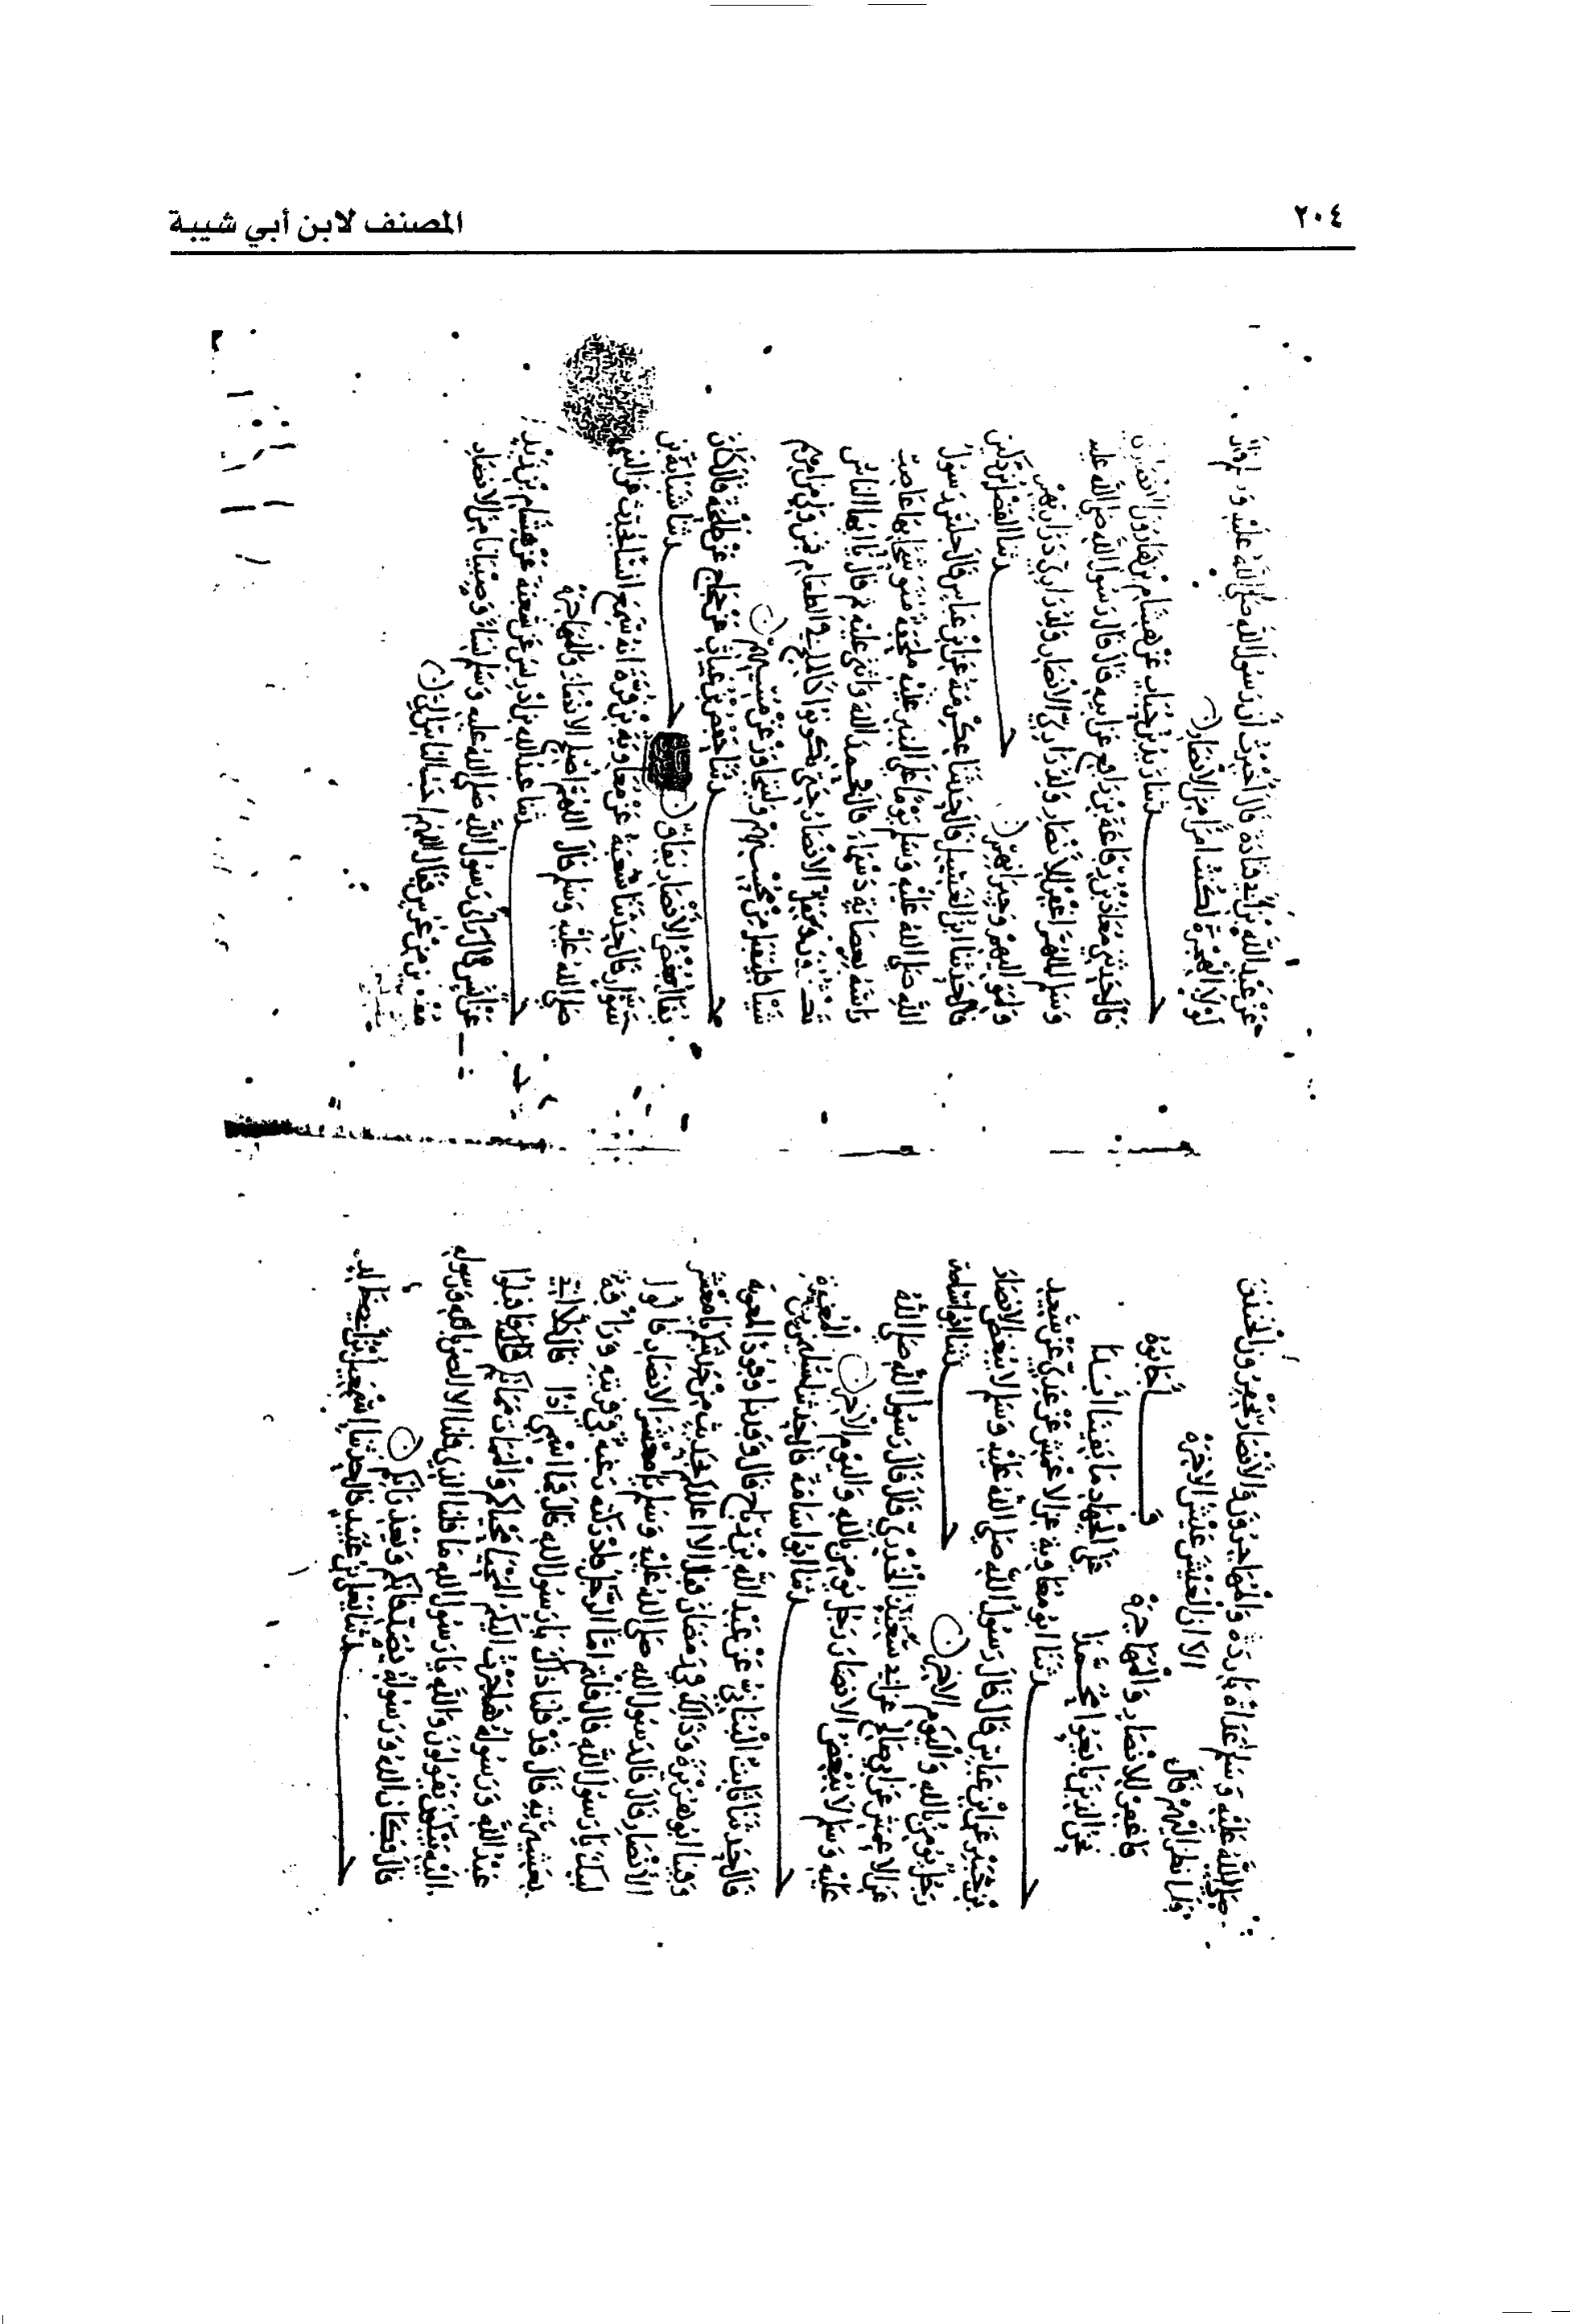 المصنف لابن أبي شيبة
٢٠٤
صلى الله عليه وسلم غداة باردة والمهاجرون والانصار يحفرون الخندق
ولما نظر اليهم قال الا ان العيش عيش الاخرة
فاغفر للانصار والمهاجرة فاجابوه
نحن الذين بايعوا محمدا على الجهاد ما بقينا ابدا
حدثنا ابو معاوية عن الاعمش عن عدي عن سعيد
بن جبير عن ابن عباس قال قال رسول الله صلى الله عليه وسلم لا يبغض الانصار
رجل يؤمن بالله واليوم الاخر حدثنا ابو اسامة
عن الاعمش عن ابي صالح عن ابي سعيد الخدري قال قال رسول الله صلى الله
عليه وسلم لا يبغض الانصار رجل يؤمن بالله واليوم الاخر
حدثنا ابو اسامة قال حدثني سليمن بن المغيرة
قال حدثنا ثابت البناني عن عبد الله بن رباح قال وفدنا وفود الى معوية
وفينا ابو هريرة وذلك في رمضان فقال الا اعللكم بحديث من حديثكم يا معشر
الانصار قال قال رسول الله صلى الله عليه وسلم يا معشر الانصار قالوا
لبيك يا رسول الله قال قلتم اما الرجل فادركته رغبة في قريته ورافة
بعشيرته قال قد قلنا ذاك يا رسول الله قال فما اسمي اذا قال كلا اني
عبد الله ورسوله هاجرت اليكم المحيا محياكم والممات مماتكم قال فاقبلوا
اليه يبكون يقولون والله يا رسول الله ما قلنا الذي قلنا الا الضن بالله ورسوله
قال فكان الله ورسوله يصدقانكم ويعذرانكم
حدثنا يعلى بن عبيد قال حدثنا اسمعيل بن ابي خالد
عن عبد الله بن ابي قتادة قال اخبرت ان رسول الله صلى الله عليه وسلم قال
لولا الهجرة لكنت امرا من الانصار
حدثنا زيد بن حباب عن هشام بن هارون الانصاري
قال حدثني معاذ بن رفاعة بن رافع عن ابيه قال قال رسول الله صلى الله عليه
وسلم اللهم اغفر للانصار ولذراري الانصار ولذراري ذراريهم
ولمواليهم وجيرانهم حدثنا الفضل بن دكين
قال حدثنا ابن الغسيل قال حدثنا عكرمة عن ابن عباس قال جلس رسول
الله صلى الله عليه وسلم يوما على المنبر عليه ملحفة متوشحا بها عاصب
راسه بعصابة دسماء قال فحمد الله واثنى عليه ثم قال يا ايها الناس
تكثرون وتقل الانصار حتى يكونوا كالملح في الطعام فمن ولي من امرهم
شيا فليقبل من محسنهم وليتجاوز عن مسيئهم
حدثنا حفص بن غياث عن حجاج عن طلحة قال كان
يقال بغض الانصار نفاق حدثنا شبابة بن
سوار قال حدثنا شعبة عن معاوية بن قرة انه سمع انسا يحدث عن النبي
صلى الله عليه وسلم قال اللهم اصلح الانصار والمهاجرة
حدثنا عبد الله بن ادريس عن شعبة عن هشام بن زيد
عن انس قال راى رسول الله صلى الله عليه وسلم نساء وصبيانا من الانصار
مقبلين من عرس فقال اللهم احب الناس الي